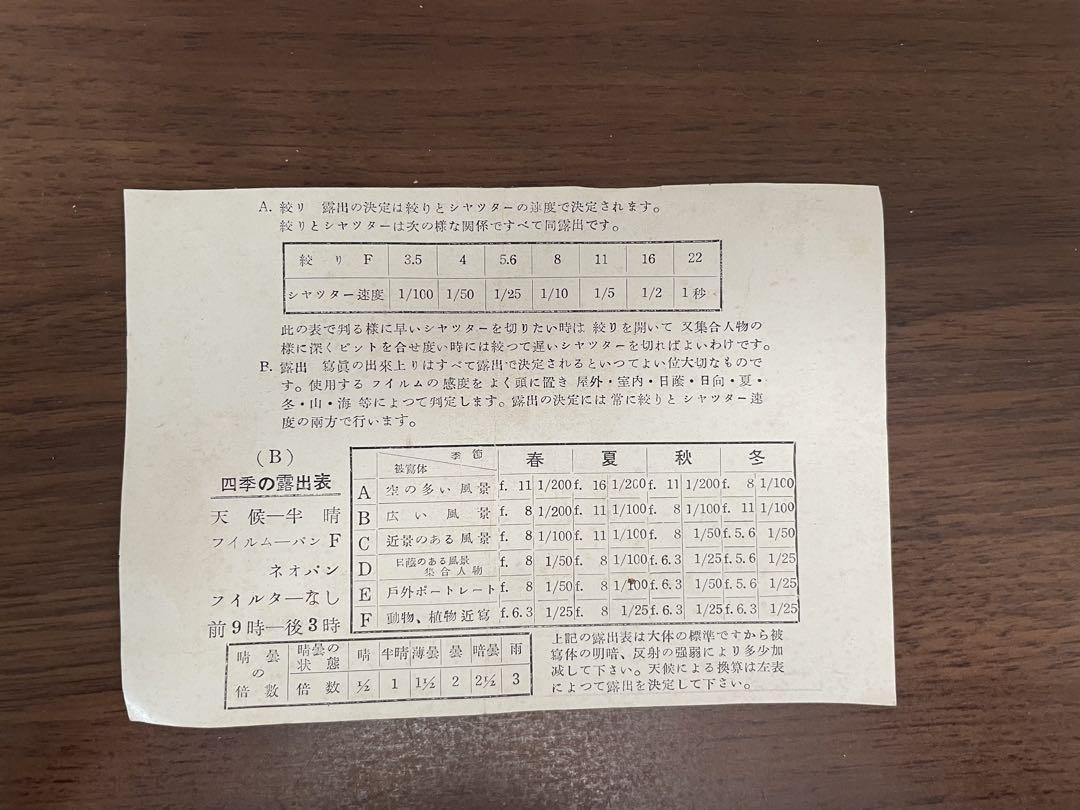 A. 絞リ 露出の決定は絞りとシヤツターの速度で決定されます。
絞りとシヤツターは次の様な関係ですべて同露出です。
絞 リ F 3.5 4 5.6 8 11 16 22
シヤツター速度 1/100 1/50 1/25 1/10 1/5 1/2 1秒
此の表で判る様に早いシヤツターを切りたい時は 絞りを開いて 又集合人物の
様に深くピントを合せ度い時には絞つて遅いシヤツターを切ればよいわけです。
B. 露出 寫眞の出來上りはすべて露出で決定されるといつてよい位大切なもので
す。使用する フイルムの感度を よく頭に置き 屋外・室内・日蔭・日向・夏・
冬・山・海 等によつて判定します。露出の決定には 常に絞りと シヤツター速
度の両方で行います。
(B)
四季の露出表
天候—半 晴
フイルム—パン F
ネオパン
フイルター—なし
前9時—後3時
季節 被寫体 春 夏 秋 冬
A 空の多い風景 f. 11 1/200 f. 16 1/200 f. 11 1/200 f. 8 1/100
B 広い風景 f. 8 1/200 f. 11 1/100 f. 8 1/100 f. 11 1/100
C 近景のある風景 f. 8 1/100 f. 11 1/100 f. 8 1/50 f. 5.6 1/50
D 日蔭のある風景 集合人物 f. 8 1/50 f. 8 1/100 f. 6.3 1/25 f. 5.6 1/25
E 戸外ポートレート f. 8 1/50 f. 8 1/100 f. 6.3 1/50 f. 5.6 1/25
F 動物、植物近寫 f. 6.3 1/25 f. 8 1/25 f. 6.3 1/25 f. 5.6 1/25
晴曇の倍數 晴曇の状態 晴 半晴 薄曇 曇 暗曇 雨
倍數 ½ 1 1½ 2 2½ 3
上記の露出表は大体の標準ですから被
寫体の明暗、反射の强弱により多少加
減して下さい。天候による換算は左表
によつて露出を決定して下さい。